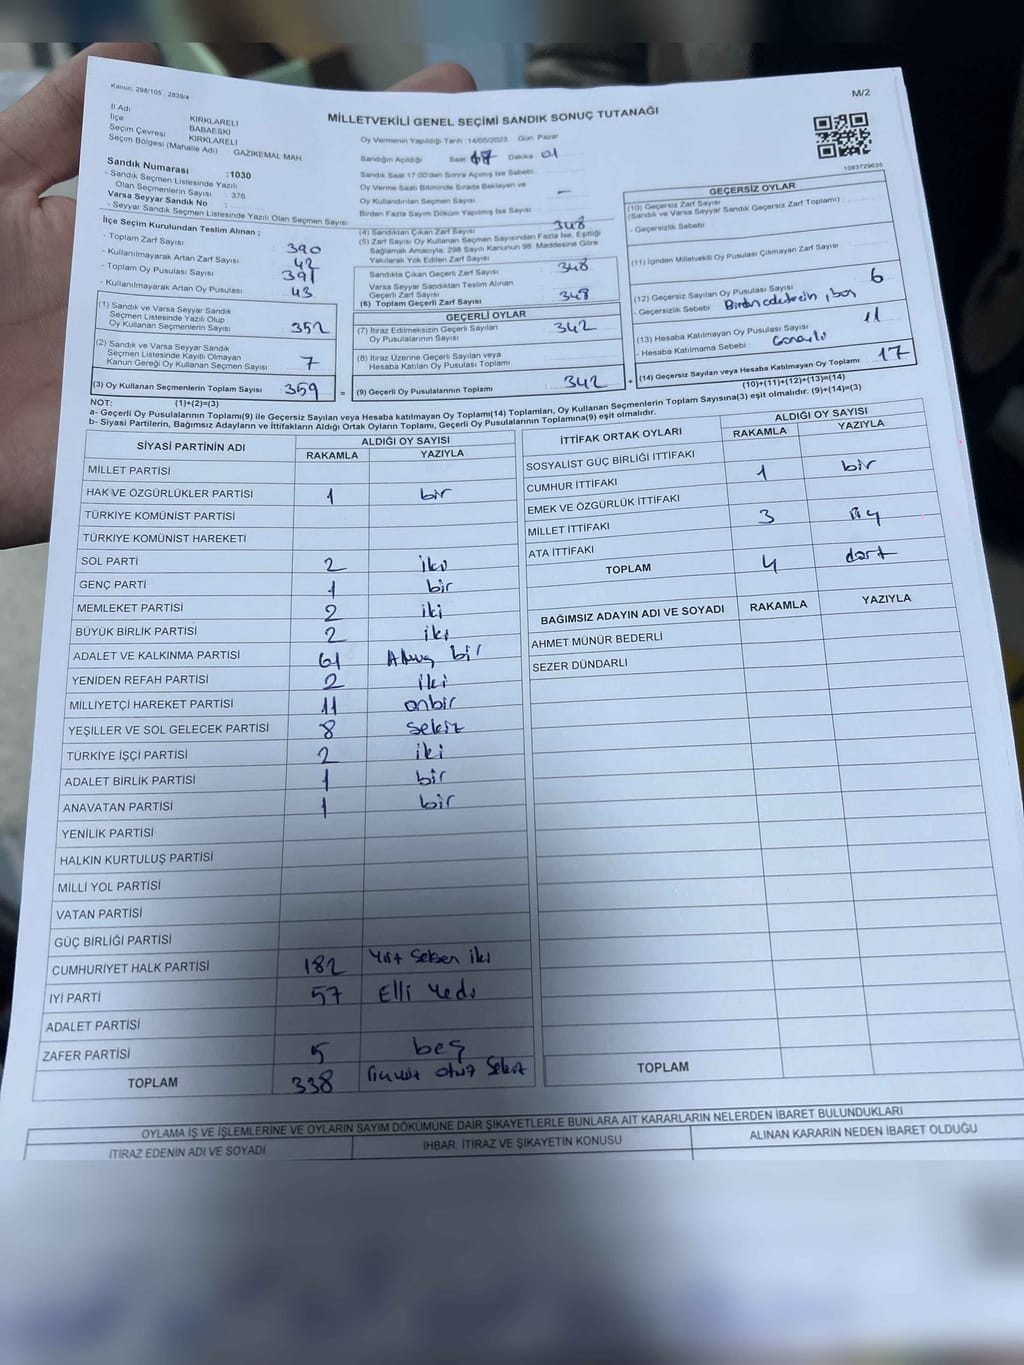 Kanun: 298/105 ; 2839/4
M/2
MİLLETVEKİLİ GENEL SEÇİMİ SANDIK SONUÇ TUTANAĞI
İl Adı : KIRKLARELİ
İlçe : BABAESKİ
Seçim Çevresi : KIRKLARELİ
Seçim Bölgesi (Mahalle Adı) : GAZİKEMAL MAH.
Sandık Numarası :1030
- Sandık Seçmen Listesinde Yazılı
Olan Seçmenlerin Sayısı : 376
Varsa Seyyar Sandık No :
- Seyyar Sandık Seçmen Listesinde Yazılı Olan Seçmen Sayısı
Oy Vermenin Yapıldığı Tarih :14/05/2023 Gün: Pazar
Sandığın Açıldığı Saat 17 Dakika 01
Sandık Saat 17:00'den Sonra Açılmış İse Sebebi :
Oy Verme Saati Bitiminde Sırada Bekleyen ve
Oy Kullandırılan Seçmen Sayısı : —
Birden Fazla Sayım Döküm Yapılmış İse Sayısı
1083729635
İlçe Seçim Kurulundan Teslim Alınan ;
- Toplam Zarf Sayısı 390
- Kullanılmayarak Artan Zarf Sayısı 42
- Toplam Oy Pusulası Sayısı 391
- Kullanılmayarak Artan Oy Pusulası 43
(1) Sandık ve Varsa Seyyar Sandık
Seçmen Listesinde Yazılı Olup
Oy Kullanan Seçmenlerin Sayısı 352
(2) Sandık ve Varsa Seyyar Sandık
Seçmen Listesinde Kayıtlı Olmayan
Kanun Gereği Oy Kullanan Seçmen Sayısı 7
(3) Oy Kullanan Seçmenlerin Toplam Sayısı 359 =
(4) Sandıktan Çıkan Zarf Sayısı 348
(5) Zarf Sayısı Oy Kullanan Seçmen Sayısından Fazla İse, Eşitliği
Sağlamak Amacıyla; 298 Sayılı Kanunun 98. Maddesine Göre
Yakılarak Yok Edilen Zarf Sayısı
Sandıkta Çıkan Geçerli Zarf Sayısı 348
Varsa Seyyar Sandıktan Teslim Alınan
Geçerli Zarf Sayısı
(6) Toplam Geçerli Zarf Sayısı 348
GEÇERLİ OYLAR
(7) İtiraz Edilmeksizin Geçerli Sayılan
Oy Pusulalarının Sayısı 342
(8) İtiraz Üzerine Geçerli Sayılan veya
Hesaba Katılan Oy Pusulası Toplamı
(9) Geçerli Oy Pusulalarının Toplamı 342 +
GEÇERSİZ OYLAR
(10) Geçersiz Zarf Sayısı
(Sandık ve Varsa Seyyar Sandık Geçersiz Zarf Toplamı)
- Geçersizlik Sebebi :
(11) İçinden Milletvekili Oy Pusulası Çıkmayan Zarf Sayısı
(12) Geçersiz Sayılan Oy Pusulası Sayısı 6
- Geçersizlik Sebebi
(13) Hesaba Katılmayan Oy Pusulası Sayısı 11
- Hesaba Katılmama Sebebi :
(14) Geçersiz Sayılan veya Hesaba Katılmayan Oy Toplamı 17
(10)+(11)+(12)+(13)=(14)
NOT: (1)+(2)=(3)
a- Geçerli Oy Pusulalarının Toplamı(9) ile Geçersiz Sayılan veya Hesaba katılmayan Oy Toplamı(14) Toplamları, Oy Kullanan Seçmenlerin Toplam Sayısına(3) eşit olmalıdır. (9)+(14)=(3)
b- Siyasi Partilerin, Bağımsız Adayların ve İttifakların Aldığı Ortak Oyların Toplamı, Geçerli Oy Pusulalarının Toplamına(9) eşit olmalıdır.
SİYASİ PARTİNİN ADI ALDIĞI OY SAYISI
RAKAMLA YAZIYLA
MİLLET PARTİSİ
HAK VE ÖZGÜRLÜKLER PARTİSİ 1 bir
TÜRKİYE KOMÜNİST PARTİSİ
TÜRKİYE KOMÜNİST HAREKETİ
SOL PARTİ 2 iki
GENÇ PARTİ 1 bir
MEMLEKET PARTİSİ 2 iki
BÜYÜK BİRLİK PARTİSİ 2 iki
ADALET VE KALKINMA PARTİSİ 61 Atmış bir
YENİDEN REFAH PARTİSİ 2 iki
MİLLİYETÇİ HAREKET PARTİSİ 11 onbir
YEŞİLLER VE SOL GELECEK PARTİSİ 8 sekiz
TÜRKİYE İŞÇİ PARTİSİ 2 iki
ADALET BİRLİK PARTİSİ 1 bir
ANAVATAN PARTİSİ 1 bir
YENİLİK PARTİSİ
HALKIN KURTULUŞ PARTİSİ
MİLLİ YOL PARTİSİ
VATAN PARTİSİ
GÜÇ BİRLİĞİ PARTİSİ
CUMHURİYET HALK PARTİSİ 182 Yüz Seksen iki
İYİ PARTİ 57 Elli Yedi
ADALET PARTİSİ
ZAFER PARTİSİ 5 beş
TOPLAM 338 otuz Sekiz
İTTİFAK ORTAK OYLARI ALDIĞI OY SAYISI
RAKAMLA YAZIYLA
SOSYALİST GÜÇ BİRLİĞİ İTTİFAKI
CUMHUR İTTİFAKI 1 bir
EMEK VE ÖZGÜRLÜK İTTİFAKI
MİLLET İTTİFAKI 3 üç
ATA İTTİFAKI
TOPLAM 4 dört
BAĞIMSIZ ADAYIN ADI VE SOYADI RAKAMLA YAZIYLA
AHMET MÜNÜR BEDERLİ
SEZER DÜNDARLI
TOPLAM
OYLAMA İŞ VE İŞLEMLERİNE VE OYLARIN SAYIM DÖKÜMÜNE DAİR ŞİKAYETLERLE BUNLARA AİT KARARLARIN NELERDEN İBARET BULUNDUKLARI
İTİRAZ EDENİN ADI VE SOYADI İHBAR, İTİRAZ VE ŞİKAYETİN KONUSU ALINAN KARARIN NEDEN İBARET OLDUĞU